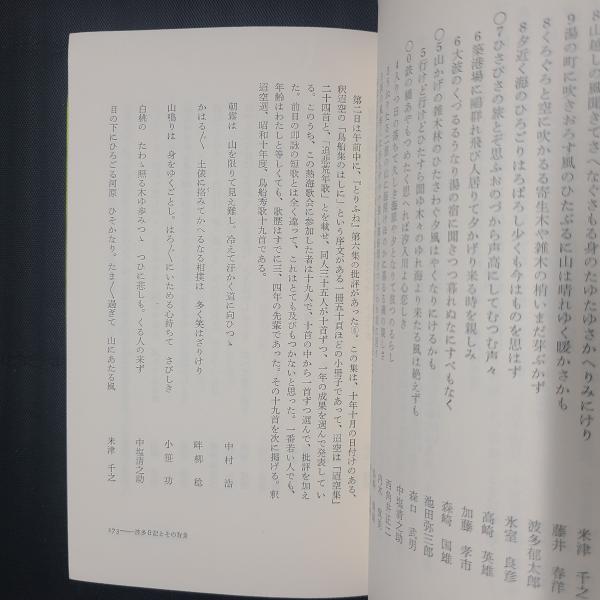 8山越しの風聞きてさへなぐさもる身のたゆたゆさかへりみにけり
米津 千之
9湯の町に吹きおろす風のひたぶるに山は晴れゆく暖かさかも
藤井 春洋
8くろぐろと空に吹かるる寄生木や雑木の梢いまだ芽ぶかず
波多郁太郎
8夕近く海のひろごりほろぼろし少しも今はものを思はず
氷室 良彦
〇7ひさびさの旅とぞ思ふおのづから声高にしてむつむ声々
高崎 英雄
6築港場に鷗群れ飛び人居りて夕かげり来る時を親しみ
加藤 孝市
6大波のくづるるうなり湯の宿に聞きつつ暮れぬなにすべもなく
森崎 国雄
〇5山かげの雑木林のひたさわぐ夕風はやくなりにけるかも
池田弥三郎
5行けど行けどひたすら聞ゆ木々のゆれ海より来たる風は絶えずも
森口 武男
中塩清之助
西角井正二
第二日は午前中に、『とりふね』第六集の批評があった⑥。この集は、十年十月の日付けのある、
釈迢空の「鳥船集のはしに」という序文がある一冊五十頁ほどの小冊子であって、迢空は「迢空集」
二十四首と、「追悲荒年歌」とを載せ、同人三十五人が十首ずつ、一年の成果を選んで発表してい
る。このうち、この熱海歌会に参加した者は十九人で、十首の中から一首ずつ選んで、批評を加え
た。前日の即詠の短歌とは全く違って、これはとても及びもつかないと思った。一番若い人でも、
年齢はわたしと等しくても、歌歴はすでに三、四年の先輩であった。その十九首を次に掲げる。釈
迢空選、昭和十年度、鳥船秀歌十九首である。
朝霧は 山を限りて見え難し。冷えて汗かく道に向ひつゝ
中村 浩
かはる〴〵 土俵に搦みてかへるなる相撲は 多く笑はざりけり
畔柳 稔
山鳴りは 身をゆくごとし。はろ〴〵にいためる心持ちて さびしき
小笹 功
白桃の たわゝ照る木ゆ歩みつゝ つひに悲しも。くる人の来ず
中塩清之助
目の下にひろごる河原 ひそかなり。たま〳〵過ぎて 山にあたる風
米津 千之
273——波多日記とその背景